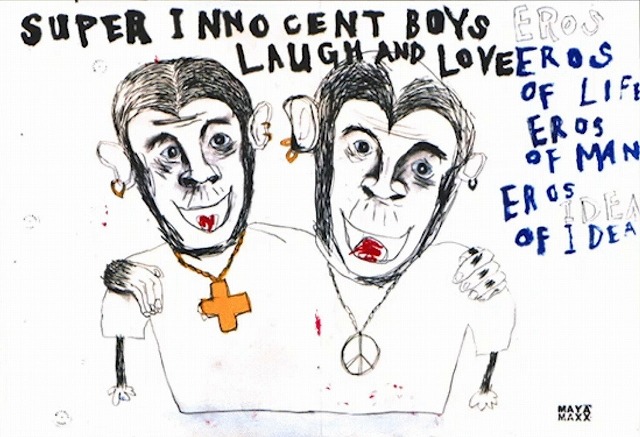 SUPER INNOCENT BOYS
LAUGH AND LOVE
EROS
EROS
OF LIFE
EROS
OF MAN
EROS
IDEA
OF IDEA
MAYA
MAXX